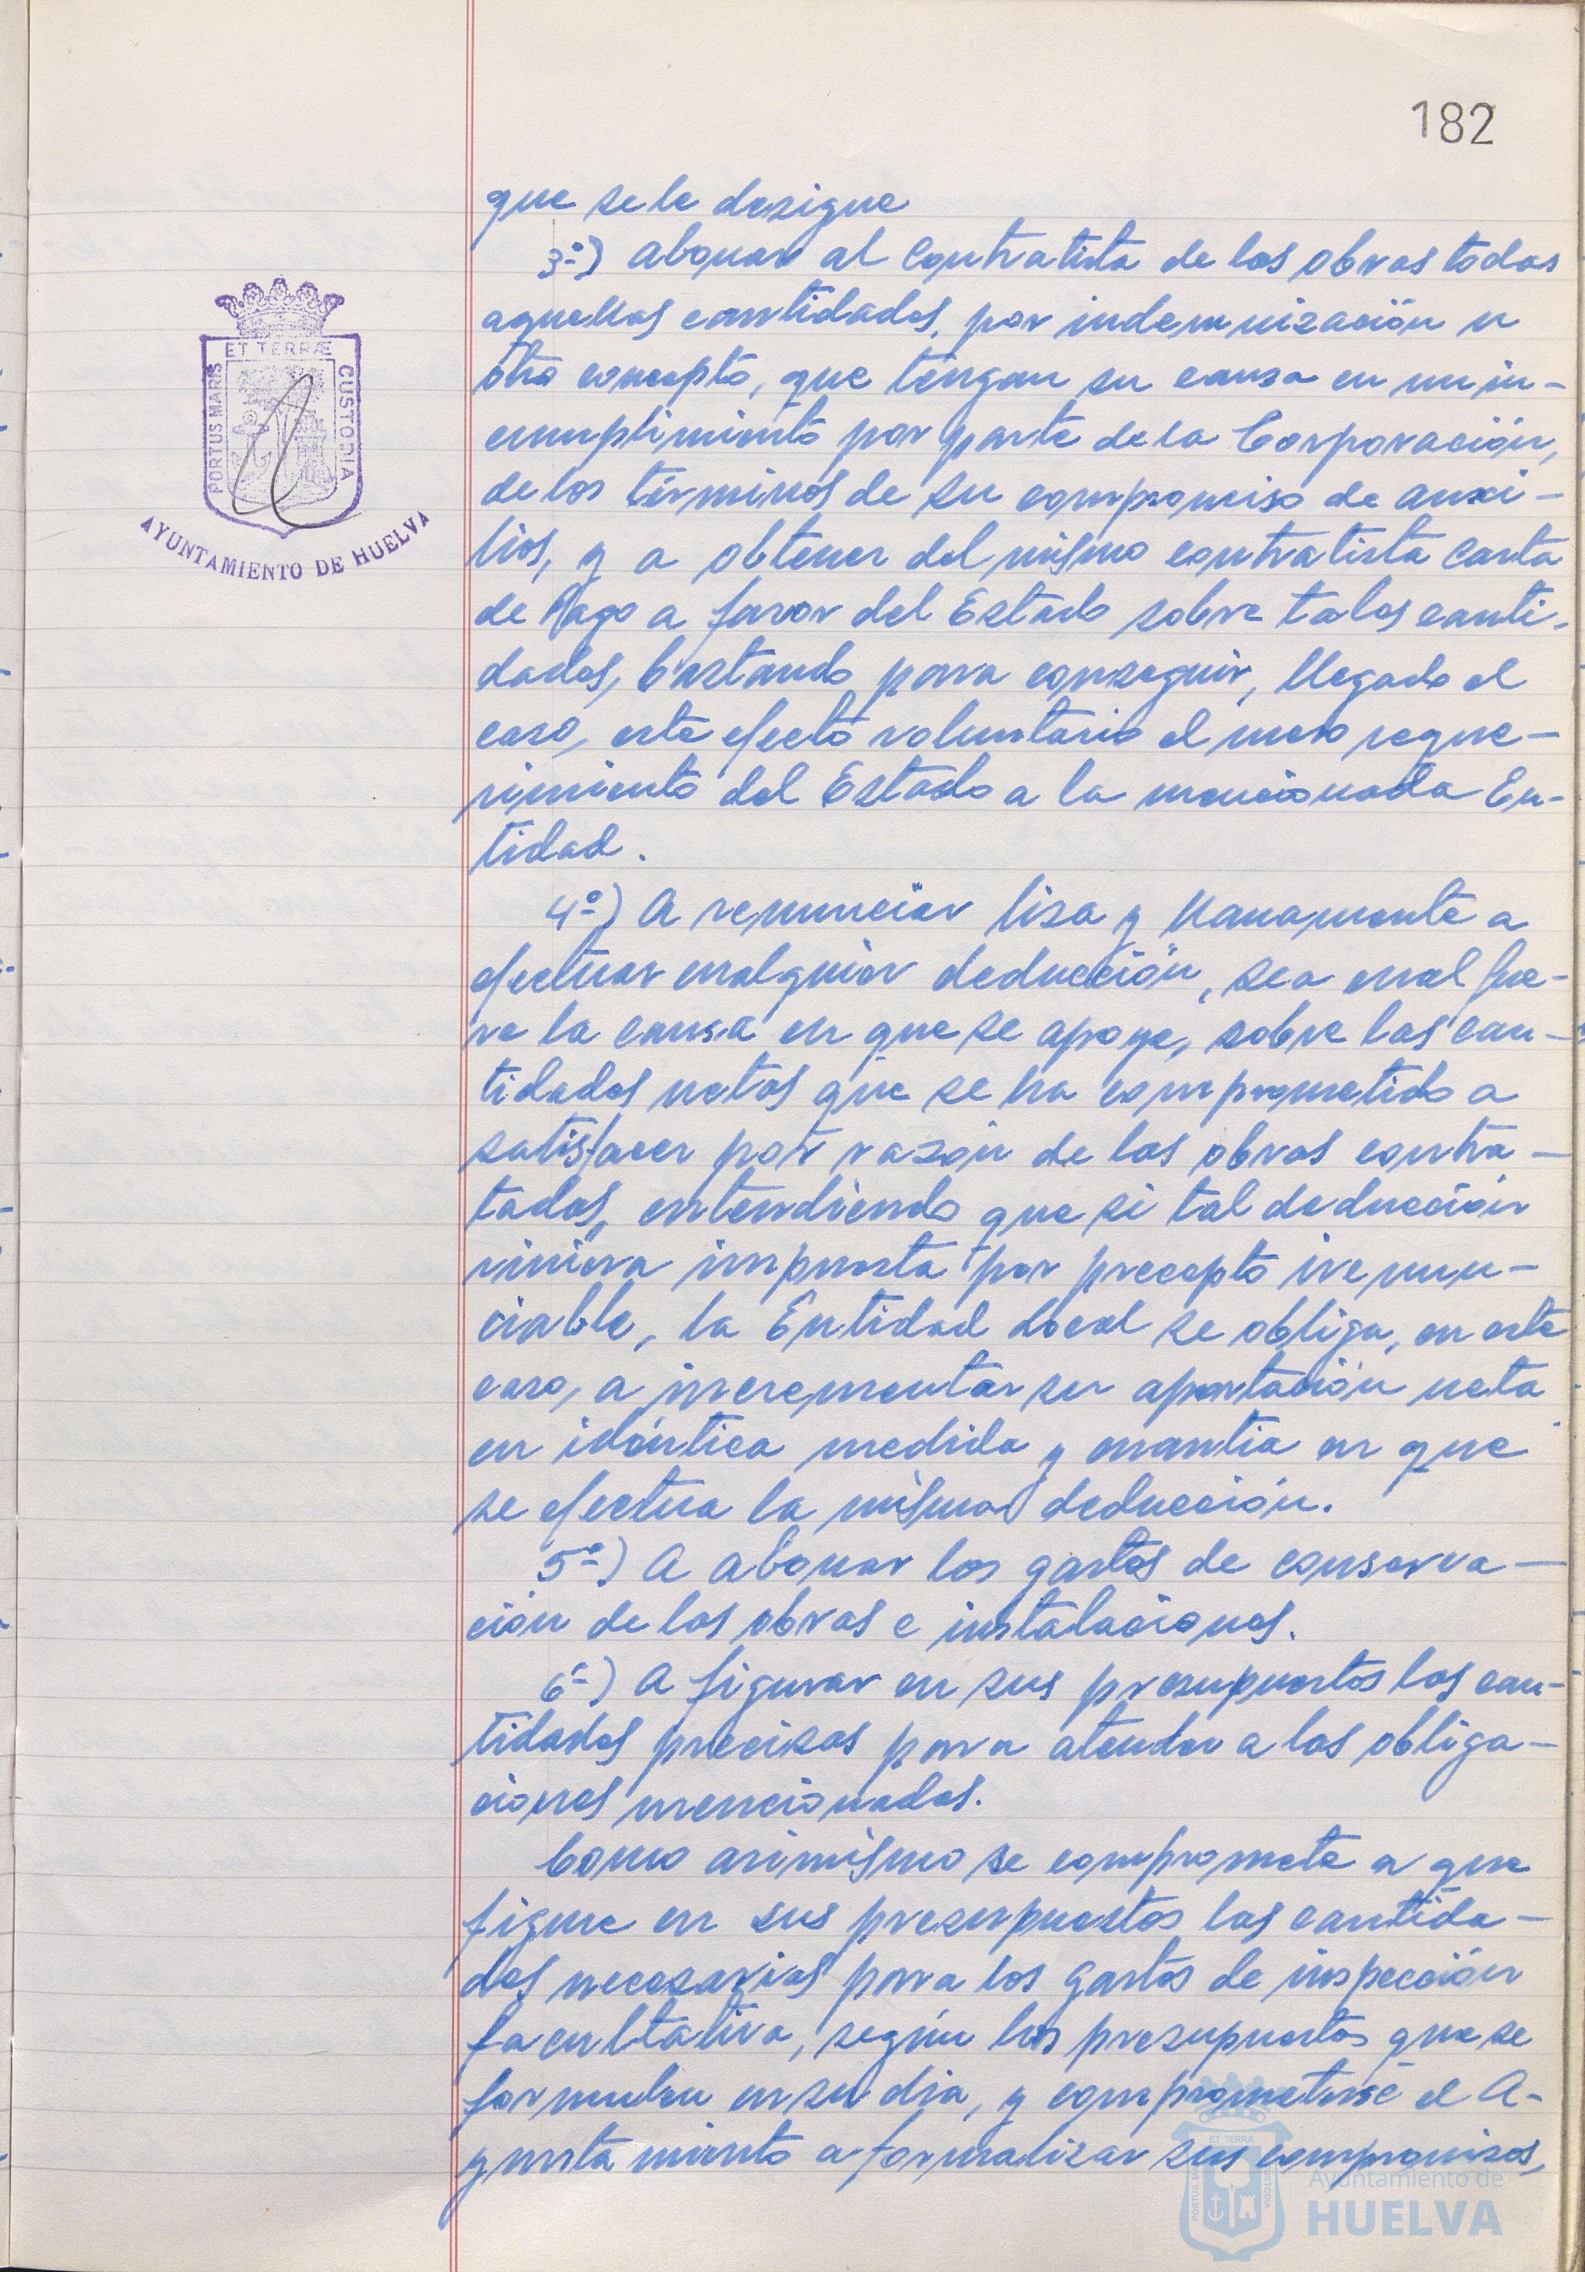 182
que se le designe
3º) Abonar al Contratista de las obras todas
aquellas cantidades, por indemnización u
otro concepto, que tengan su causa en un in-
cumplimiento por parte de la Corporación,
de los términos de su compromiso de auxi-
lios, y a obtener del mismo contratista Carta
de Pago a favor del Estado sobre tales canti-
dades, bastando para conseguir, llegado el
caso, este efecto voluntario el mero reque-
rimiento del Estado a la mencionada En-
tidad.
4º) A renunciar lisa y llanamente a
efectuar cualquier deducción, sea cual fue-
re la causa en que se apoye, sobre las can-
tidades netas que se ha comprometido a
satisfacer por razón de las obras contra-
tadas, entendiendo que si tal deducción
viniera impuesta por precepto irenun-
ciable, la Entidad Local se obliga, en este
caso, a incrementar su aportación neta
en idéntica medida y cuantia en que
se efectua la misma deducción.
5º) A abonar los gastos de conserva-
ción de las obras e instalaciones.
6º) A figurar en sus presupuestos las can-
tidades precisas para atender a las obliga-
ciones mencionadas.
Como asimismo se compromete a que
figure en sus presupuestos las cantida-
des necesarias para los gastos de inspección
facultativa, según los presupuestos que se
formulen en su dia, y comprometerse el A-
yuntamiento a formalizar sus compromisos,
ET TERRÆ
PORTUS MARIS
CUSTODIA
AYUNTAMIENTO DE HUELVA
Ayuntamiento de
HUELVA